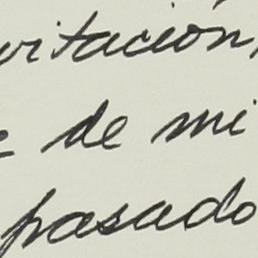 vitación,
de mi
pasado